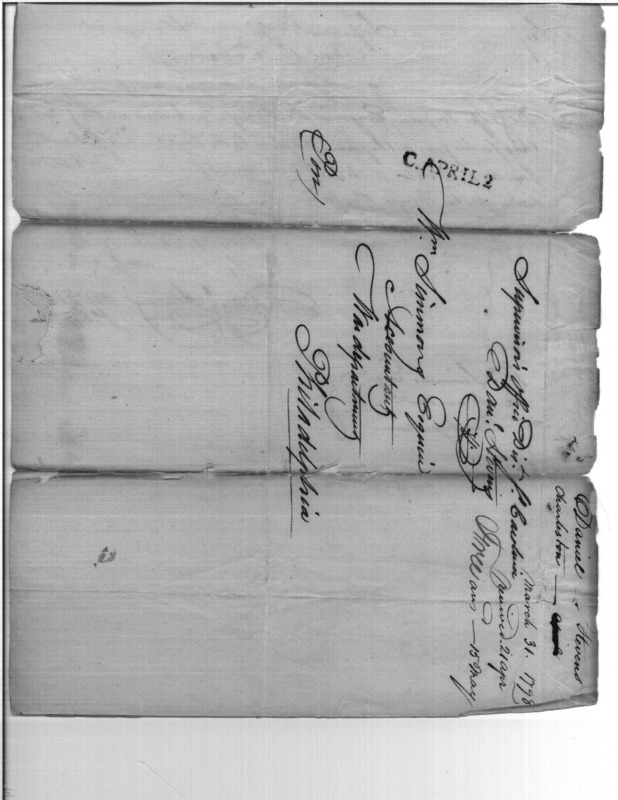 C. APRIL 2
Supervisor's Office Dist. So. Carolina
Danl. Stevens
Wm Simmons Esquire
Accountant
War department
Philadelphia
Pr
Daniel Stevens
Charleston
March 31. 1798
Received 21 apr
15 May